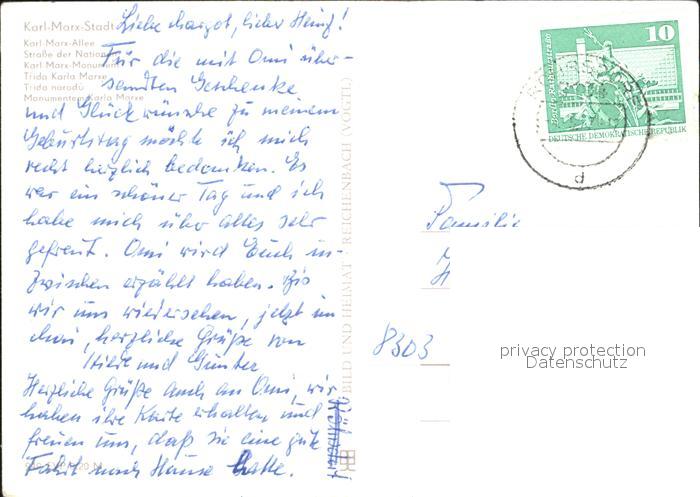 Karl-Marx-Stadt
Karl-Marx-Allee
Straße der Nationen
Karl Marx-Monument
Trida Karla Marxe
Trida národú
Monumenten Karla Marxe
Liebe Margot, lieber Heinz!
Für die mit Omi über-
sandten Geschenke
und Glückwünsche zu meinem
Geburtstag möchte ich mich
recht herzlich bedanken. Es
war ein schöner Tag und ich
habe mich über alles sehr
gefreut. Omi wird Euch in-
zwischen erzählt haben. Bis
wir uns wiedersehen, jetzt im
herzliche Grüße von
und Günter
Herzliche Grüße auch an Omi, wir
haben ihre Karte erhalten und
freuen uns, daß sie eine gute
Fahrt nach Hause hatte.
BILD UND HEIMAT REICHENBACH (VOGTL)
10
DEUTSCHE DEMOKRATISCHE REPUBLIK
d
Familie
8303
privacy protection
Datenschutz